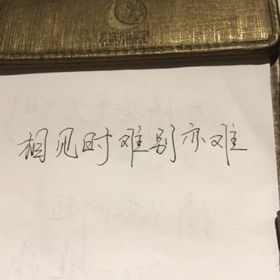 相见时难别亦难